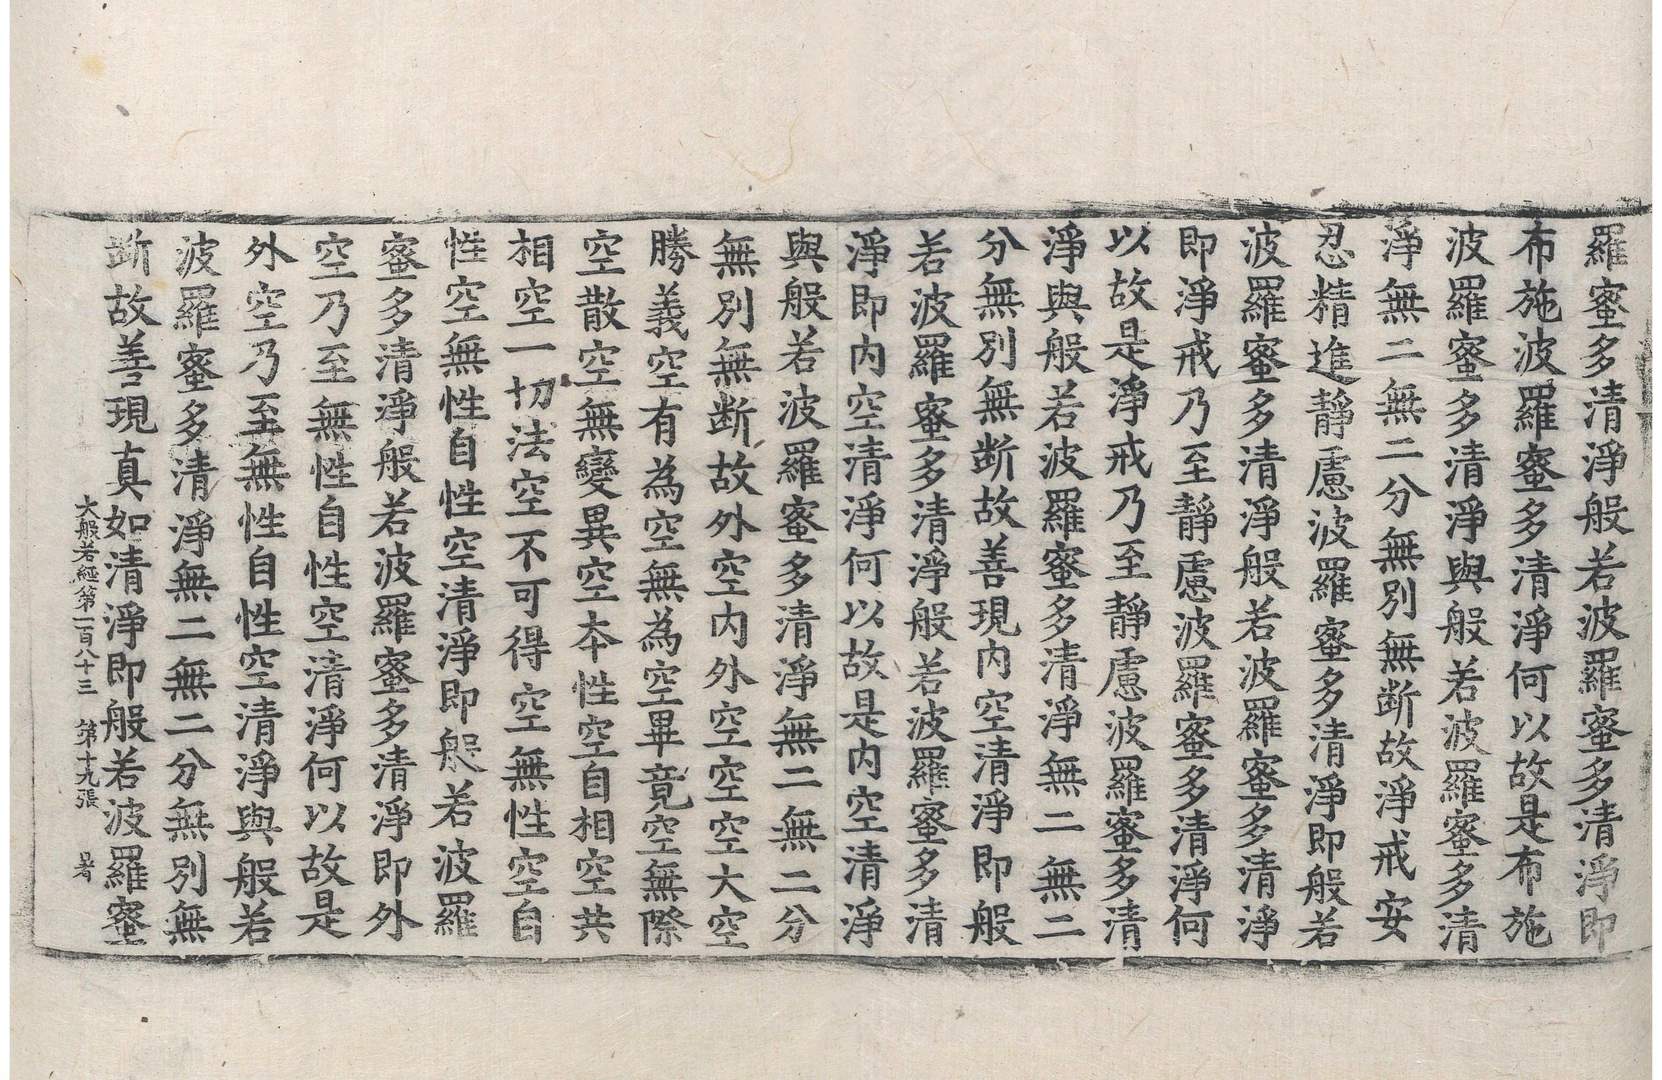 羅蜜多清淨般若波羅蜜多清淨即
布施波羅蜜多清淨何以故是布施
波羅蜜多清淨與般若波羅蜜多清
淨無二無二分無別無断故淨戒安
忍精進靜慮波羅蜜多清淨即般若
波羅蜜多清淨般若波羅蜜多清淨
即淨戒乃至靜慮波羅蜜多清淨何
以故是淨戒乃至靜慮波羅蜜多清
淨與般若波羅蜜多清淨無二無二
分無別無断故善現内空清淨即般
若波羅蜜多清淨般若波羅蜜多清
淨即内空清淨何以故是内空清淨
與般若波羅蜜多清淨無二無二分
無別無断故外空内外空空空大空
勝義空有為空無為空畢竟空無際
空散空無變異空本性空自相空共
相空一切法空不可得空無性空自
性空無性自性空清淨即般若波羅
蜜多清淨般若波羅蜜多清淨即外
空乃至無性自性空清淨何以故是
外空乃至無性自性空清淨與般若
波羅蜜多清淨無二無二分無別無
断故善現真如清淨即般若波羅蜜
大般若經第一百八十三 第十九張